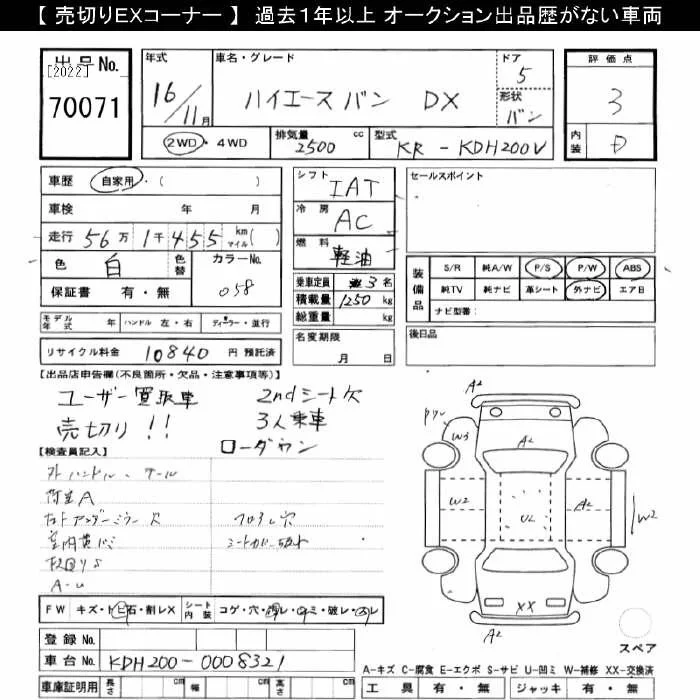 【 売切りEXコーナー 】 過去１年以上 オークション出品歴がない車両
出品No.
[2022]
70071
年式
16/11月
車名・グレード
ハイエースバン DX
ドア
5
形状
バン
評価点
3
内装
D
2WD・4WD
排気量
2500
cc
型式
KR - KDH200V
車歴 自家用・( )
車検 年 月
走行 56万1千455 km マイル( )
色 白 色替 カラーNo. 058
保証書 有・無
シフト IAT
冷房 AC
燃料 軽油
乗車定員 3名
積載量 1250 kg
総重量 kg
セールスポイント
装備品
S/R 純A/W P/S P/W ABS
純TV 純ナビ 革シート 外ナビ エア日
ナビ型番：
モデル年式 年 ハンドル 左・右 ディーラー・並行
リサイクル料金 10840 円 預託済
名変期限
月 日
後日品
【出品店申告欄(不良箇所・欠品・注意事項等)】
ユーザー買取車 2ndシート欠
売切り!! 3人乗車
ローダウン
【検査員記入】
荷室A
フロアし穴
シートカバー破れ
A-U
A2
W3
A2
W2
U2
A2
W2
XX
A2
スペア
FW キズ・トビ石・割レX シート内装 コゲ・穴・切レ・シミ・破レ・スレ
登録No.
車台No. KDH200-0008321
車庫証明用 長さ cm 幅 cm 高さ cm
A-キズ C-腐食 E-エクボ S-サビ U-凹ミ W-補修 XX-交換済
工具 有・無 ジャッキ 有・無